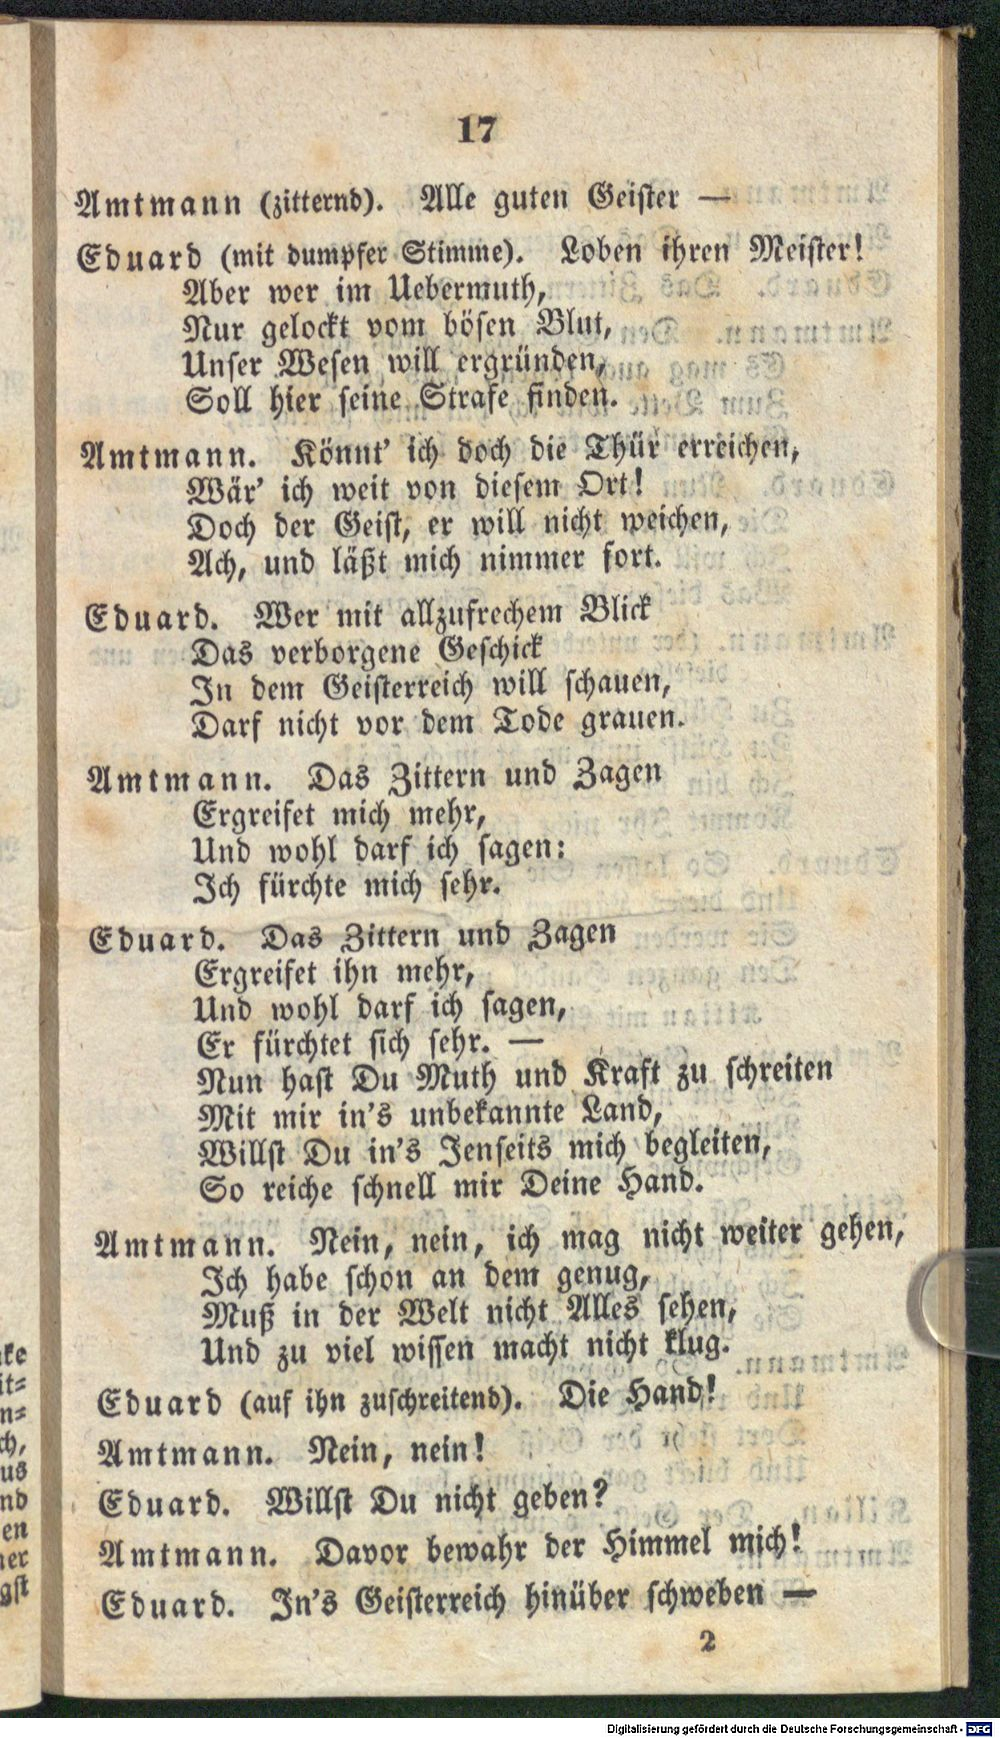 17
Amtmann (zitternd). Alle guten Geister —
Eduard (mit dumpfer Stimme). Loben ihren Meister!
Aber wer im Uebermuth,
Nur gelockt vom bösen Blut,
Unser Wesen will ergründen,
Soll hier seine Strafe finden.
Amtmann. Könnt' ich doch die Thür erreichen,
Wär' ich weit von diesem Ort!
Doch der Geist, er will nicht weichen,
Ach, und läßt mich nimmer fort.
Eduard. Wer mit allzufrechem Blick
Das verborgene Geschick
In dem Geisterreich will schauen,
Darf nicht vor dem Tode grauen.
Amtmann. Das Zittern und Zagen
Ergreifet mich mehr,
Und wohl darf ich sagen:
Ich fürchte mich sehr.
Eduard. Das Zittern und Zagen
Ergreifet ihn mehr,
Und wohl darf ich sagen,
Er fürchtet sich sehr. —
Nun hast Du Muth und Kraft zu schreiten
Mit mir in's unbekannte Land,
Willst Du in's Jenseits mich begleiten,
So reiche schnell mir Deine Hand.
Amtmann. Nein, nein, ich mag nicht weiter gehen,
Ich habe schon an dem genug,
Muß in der Welt nicht Alles sehen,
Und zu viel wissen macht nicht klug.
Eduard (auf ihn zuschreitend). Die Hand!
Amtmann. Nein, nein!
Eduard. Willst Du nicht geben?
Amtmann. Davor bewahr der Himmel mich!
Eduard. In's Geisterreich hinüber schweben —
2
Digitalisierung gefördert durch die Deutsche Forschungsgemeinschaft - DFG